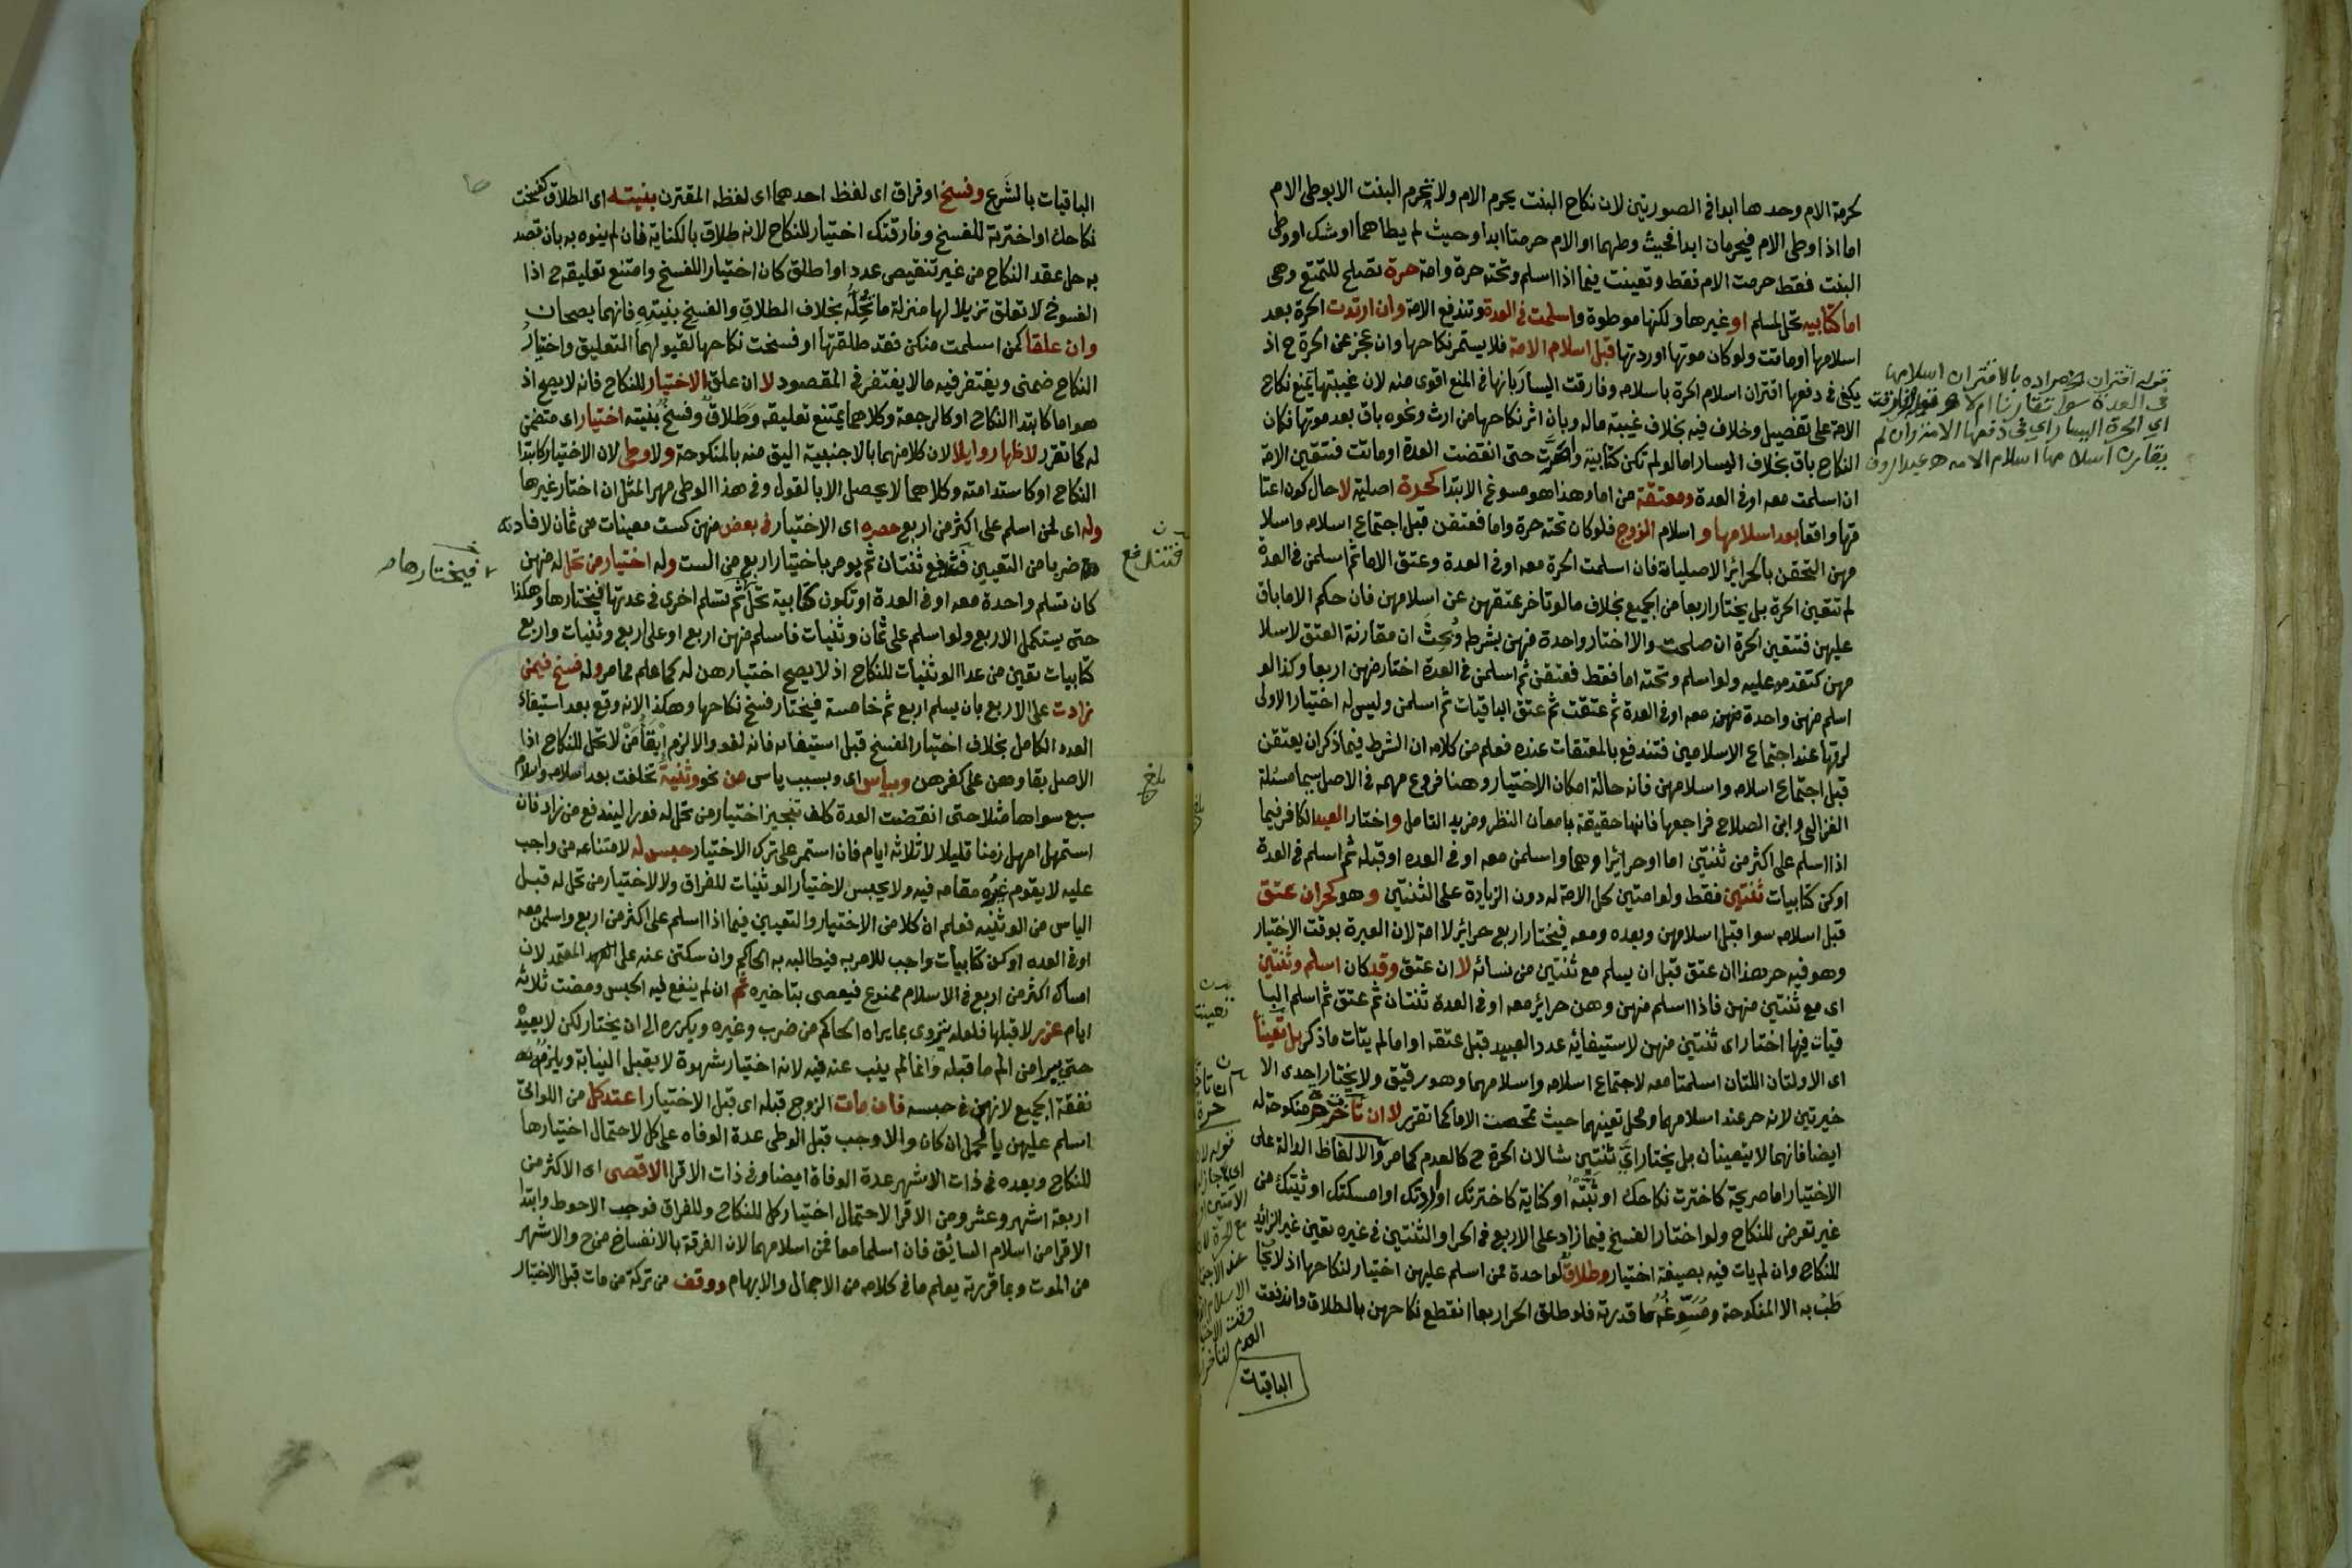 كحرمة الام وحدها ابدا في الصورتين لان نكاح البنت يحرم الام ولا تحرم البنت الا بوطى الام
اما اذا وطى الام فيحرمان ابدا فحيث وطهما او الام حرمتا ابدا وحيث لم يطاهما او شك او وطى
البنت فقط حرمت الام فقط وتعينت فيما اذا اسلم وتحته حرة وامة حرة تصلح للتمتع وهى
اما كتابيه تحل لمسلم او غيرها ولكنها موطوة واسلمت في العدة وتندفع الامة وان ارتدت الحرة بعد
اسلامها او ماتت ولو كان موتها او ردتها قبل اسلام الامة فلا يستمر نكاحها وان عجز عن الحرة ح اذ
يكفى في دفعها اقتران اسلام الحرة باسلامه وفارقت اليسار بانها في المنع اقوى منه لان غيبتها يمنع نكاح
الامة على تفصيل وخلاف فيه بخلاف غيبة ماله وبان اثر نكاحها من ارث ونحوه باق بعد موتها فكان
النكاح باق بخلاف اليسار اما لو لم تكن كتابية واصرت حتى انقضت العدة او ماتت فتتعين الامة
ان اسلمت معه او في العدة ومعتقة من اماء وهذا هو مسوغ الابتدا كحرة اصلية لا حال كون اعتا
قها واقعا بعد اسلامها و اسلام الزوج فلو كان تحته حرة واما فعتقن قبل اجتماع اسلامه واسلا
مهن التحقن بالحرائر الاصليات فان اسلمت الحرة معه او في العدة وعتق الاما ثم اسلمن في العدة
لم تتعين الحرة بل يختار اربعا من الجميع بخلاف ما لو تاخر عتقهن عن اسلامهن فان حكم الاما باق
عليهن فتتعين الحرة ان صلحت والا اختار واحدة منهن بشرطه وبحث ان مقارنة العتق لاسلا
مهن كتقدمه عليه ولو اسلم وتحته اما فقط فعتقن ثم اسلمن في العدة اختار منهن اربعا وكذا لو
اسلم منهن واحدة منهن معه او في العدة ثم عتقت ثم عتق الباقيات ثم اسلمن وليس له اختيار الاولى
لرقها عند اجتماع الاسلامين فتندفع بالمعتقات عنده فعلم من كلامه ان الشرط فيما ذكر ان يعتقن
قبل اجتماع اسلامه واسلامهن فانه حالة امكان الاختيار وهنا فروع مهمه في الاصل سيما مسئلة
الغزالى وابن الصلاح فراجعها فانها حقيقة بامعان النظر ومزيد التامل واختار العبد الكافر فيما
اذا اسلم على اكثر من ثنتين اما او حرائر او هما واسلمن معه او في العده او قبله ثم اسلم في العدة
او كن كتابيات ثنتين فقط ولو امتين لحل الامة له دون الزيادة على الثنتين وهو كحر ان عتق
قبل اسلامه سوا قبل اسلامهن وبعده ومعه فيختار اربع حرائر لا امة لان العبرة بوقت الاختيار
وهو فيه حر هذا ان عتق قبل ان يسلم مع ثنتين من نسائه لا ان عتق وقد كان اسلم وثنتين
اى مع ثنتين منهن فاذا اسلم منهن وهن حرائر معه او في العدة ثنتان ثم عتق ثم اسلم البا
قيات فيها اختار اى ثنتين منهن لاستيفائه عدد العبيد قبل عتقه او اما لم يتات ما ذكر بل تعينا
اى الاولتان اللتان اسلمتا معه لاجتماع اسلامه واسلامهما وهو رقيق ولا يختار احدى الا
خيرتين لانه حر عند اسلامهما ومحل تعينهما حيث تمحضت الاما كما تقرر لا ان تاخر حر منكوحة له
ايضا فانهما لا يتعينان بل يختار اى ثنتين شا لان الحرة ح كالعدم كما مر والالفاظ الدالة على
الاختيار اما صريحة كاخترت نكاحك او ثبته او كناية كاخترتك او اردتك او امسكتك او ثبتك من
غير تعرض للنكاح ولو اختار الفسخ فيما زاد على الاربع في الحر او الثنتين في غيره تعين غير الزائد
للنكاح وان لم يات فيه بصيغة اختيار وطلاق لواحدة ممن اسلم عليهن اختيار لنكاحها اذ لا يخا
طب به الا المنكوحة ومسوغه ما قدرته فلو طلق الحر اربعا انقطع نكاحهن بالطلاق واندفعت
الباقيات
قوله اقتران مراده بالاقتران اسلامها
في العدة سوا تقارنا ام لا
اي الحرة اليسار اي في دفعها الامة وان لم
يقارن اسلامها اسلام الامه
الباقيات بالشرع وفسخ او فراق اى لفظ احدهما اى لفظه المقترن بنيته اى الطلاق كفسخت
نكاحك او اخترته للفسخ وفارقتك اختيار للنكاح لانه طلاق بالكناية فان لم ينوه به بان قصد
به حل عقد النكاح من غير تنقيص عدد او اطلق كان اختيارا للفسخ وامتنع تعليقه ح اذا
الفسوخ لا تعلق تنزيلا لها منزلة ما تحله بخلاف الطلاق والفسخ بنيته فانهما يصحان
وان علقا كمن اسلمت منكن فقد طلقتها او فسخت نكاحها لقبولهما التعليق واختيار
النكاح ضمنى ويغتفر فيه ما لا يغتفر في المقصود لا ان علق الاختيار للنكاح فانه لا يصح اذ
هو اما كابتدا النكاح او كالرجعة وكلاهما يمتنع تعليقه وطلاق وفسخ بنيته اختيار اى متضمن
له كما تقرر لا ظهار وايلا لان كلا منهما بالاجنبية اليق منه بالمنكوحة ولا وطى لان الاختيار كابتدا
النكاح او كاستدامته وكلاهما لا يحصل الا بالقول وفي هذا الوطى مهر المثل ان اختار غيرها
وله اى لمن اسلم على اكثر من اربع حصره اى الاختيار في بعض منهن كست معينات من ثمان لافادته
ضربا من التعيين فتندفع ثنتان ثم يومر باختيار اربع من الست وله اختيار من تحل له منهن
كان تسلم واحدة معه او في العدة او تكون كتابية تحل ثم تسلم اخرى في عدتها فيختارها وهكذا
حتى يستكمل الاربع ولو اسلم على ثمان وثنيات فاسلم منهن اربع او على اربع وثنيات واربع
كتابيات تعين من عدا الوثنيات للنكاح اذ لا يصح اختيارهن له كما علم مما مر وله فسخ فيمن
زادت على الاربع بان يسلم اربع ثم خامسة فيختار فسخ نكاحها وهكذا لانه وقع بعد استيفاء
العدد الكامل بخلاف اختيار الفسخ قبل استيفائه فانه لغو والا لزم ابقا من لا تحل للنكاح اذا
الاصل بقاوهن على كفرهن وبياس اى وبسبب ياس من نحو وثنية تخلفت بعد اسلامه واسلام
سبع سواها مثلا حتى انقضت العدة كلف تنجيز اختيار من تحل له فورا ليندفع من زاد فان
استمهل امهل زمنا قليلا لا ثلاثه ايام فان استمر على ترك الاختيار حبس له لامتناعه من واجب
عليه لا يقوم غيره مقامه فيه ولا يحبس لاختيار الوثنيات للفراق ولا لاختيار من تحل له قبل
الياس من الوثنيه فعلم ان كلا من الاختيار والتعيين فيما اذا اسلم على اكثر من اربع واسلمن معه
او في العده او كن كتابيات واجب للامر به فيطالبه به الحاكم وان سكتن عنه على المعتمد لان
امساك اكثر من اربع في الاسلام ممنوع فيعصى بتاخيره ثم ان لم ينفع فيه الحبس ومضت ثلاثة
ايام عزر لا قبلها فلعله يتروى بما يراه الحاكم من ضرب وغيره ويكرره الى ان يختار لكن لا يعيده
حتى يبرا من الم ما قبله وانما لم ينب عنه فيه لانه اختيار شهوة لا يقبل النيابة ويلزمه
نفقة الجميع لانهن في حبسه فان مات الزوج قبله اى قبل الاختيار اعتد كل من اللواتى
اسلم عليهن بالحمل ان كان والا وجب قبل الوطى عدة الوفاه على كل لاحتمال اختيارها
للنكاح وبعده في ذات الاشهر عدة الوفاة ايضا وفي ذات الاقرا الاقصى اى الاكثر من
اربعة اشهر وعشر ومن الاقرا لاحتمال اختيار كل للنكاح وللفراق فوجب الاحوط وابتدا
الاقرا من اسلام السابق فان اسلما معا فمن اسلامهما لان الفرقة بالانفساخ من ح والاشهر
من الموت وبما قررته يعلم ما في كلامه من الاجمال والابهام ووقف من تركة من مات قبل الاختيار
فيختارها
بلغ